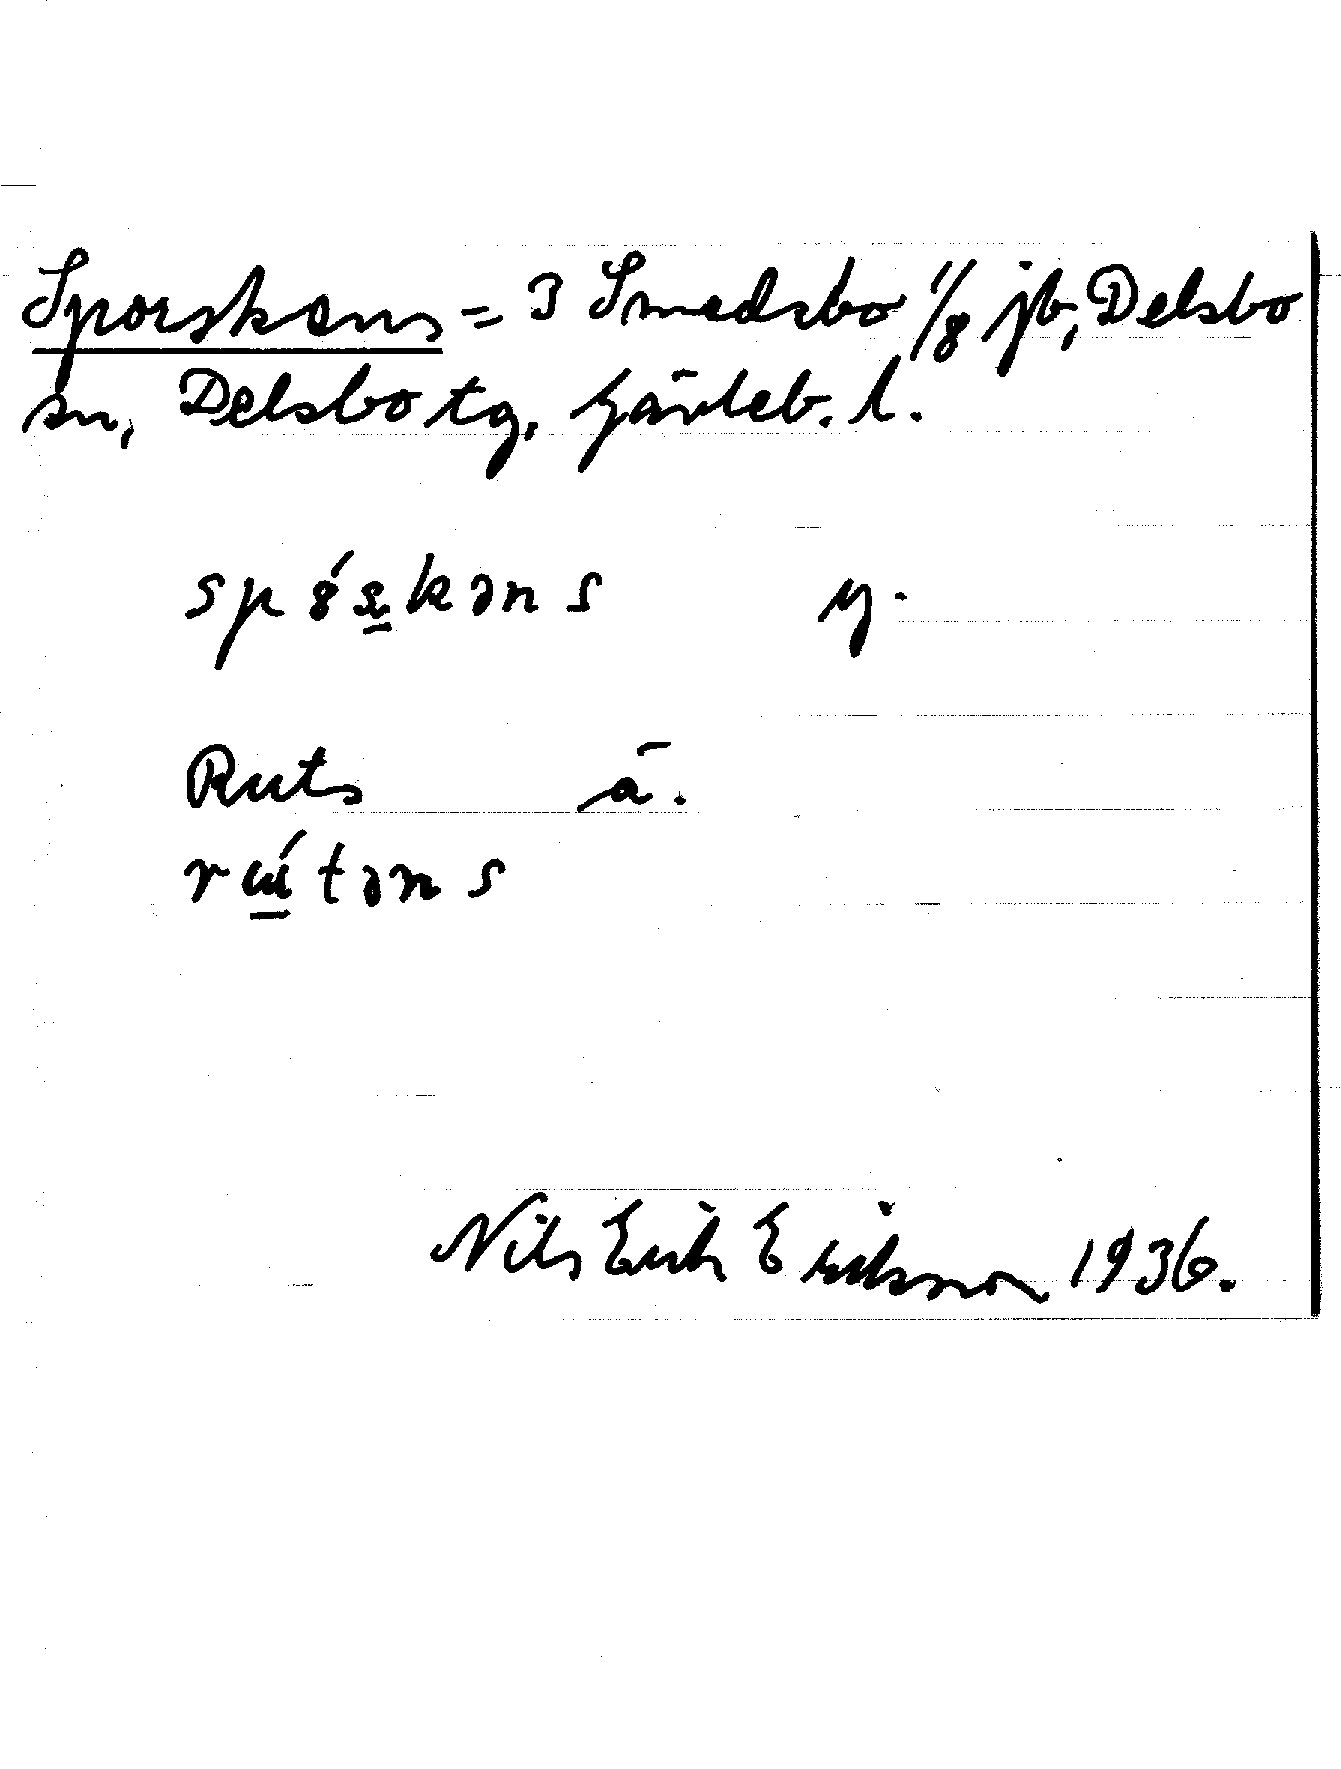 Sporskans = 3 Smedsbo 1/8 jb, Delsbo
sn, Delsbo tg, Gävleb. l.
spó̱skəns y.
Ruts ä.
rútəns
Nils Erik Eriksson 1936.